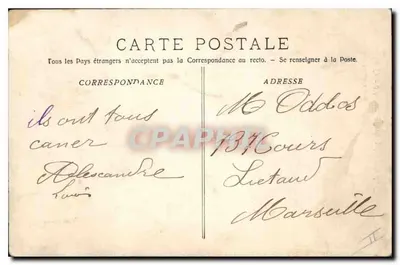 CARTE POSTALE
Tous les Pays étrangers n'acceptent pas la Correspondance au recto. - Se renseigner à la Poste.
CORRESPONDANCE
ADRESSE
ils ont tous
caner
Alescandre
Louis
M Oddos
137 Cours
Lietaud
Marseille